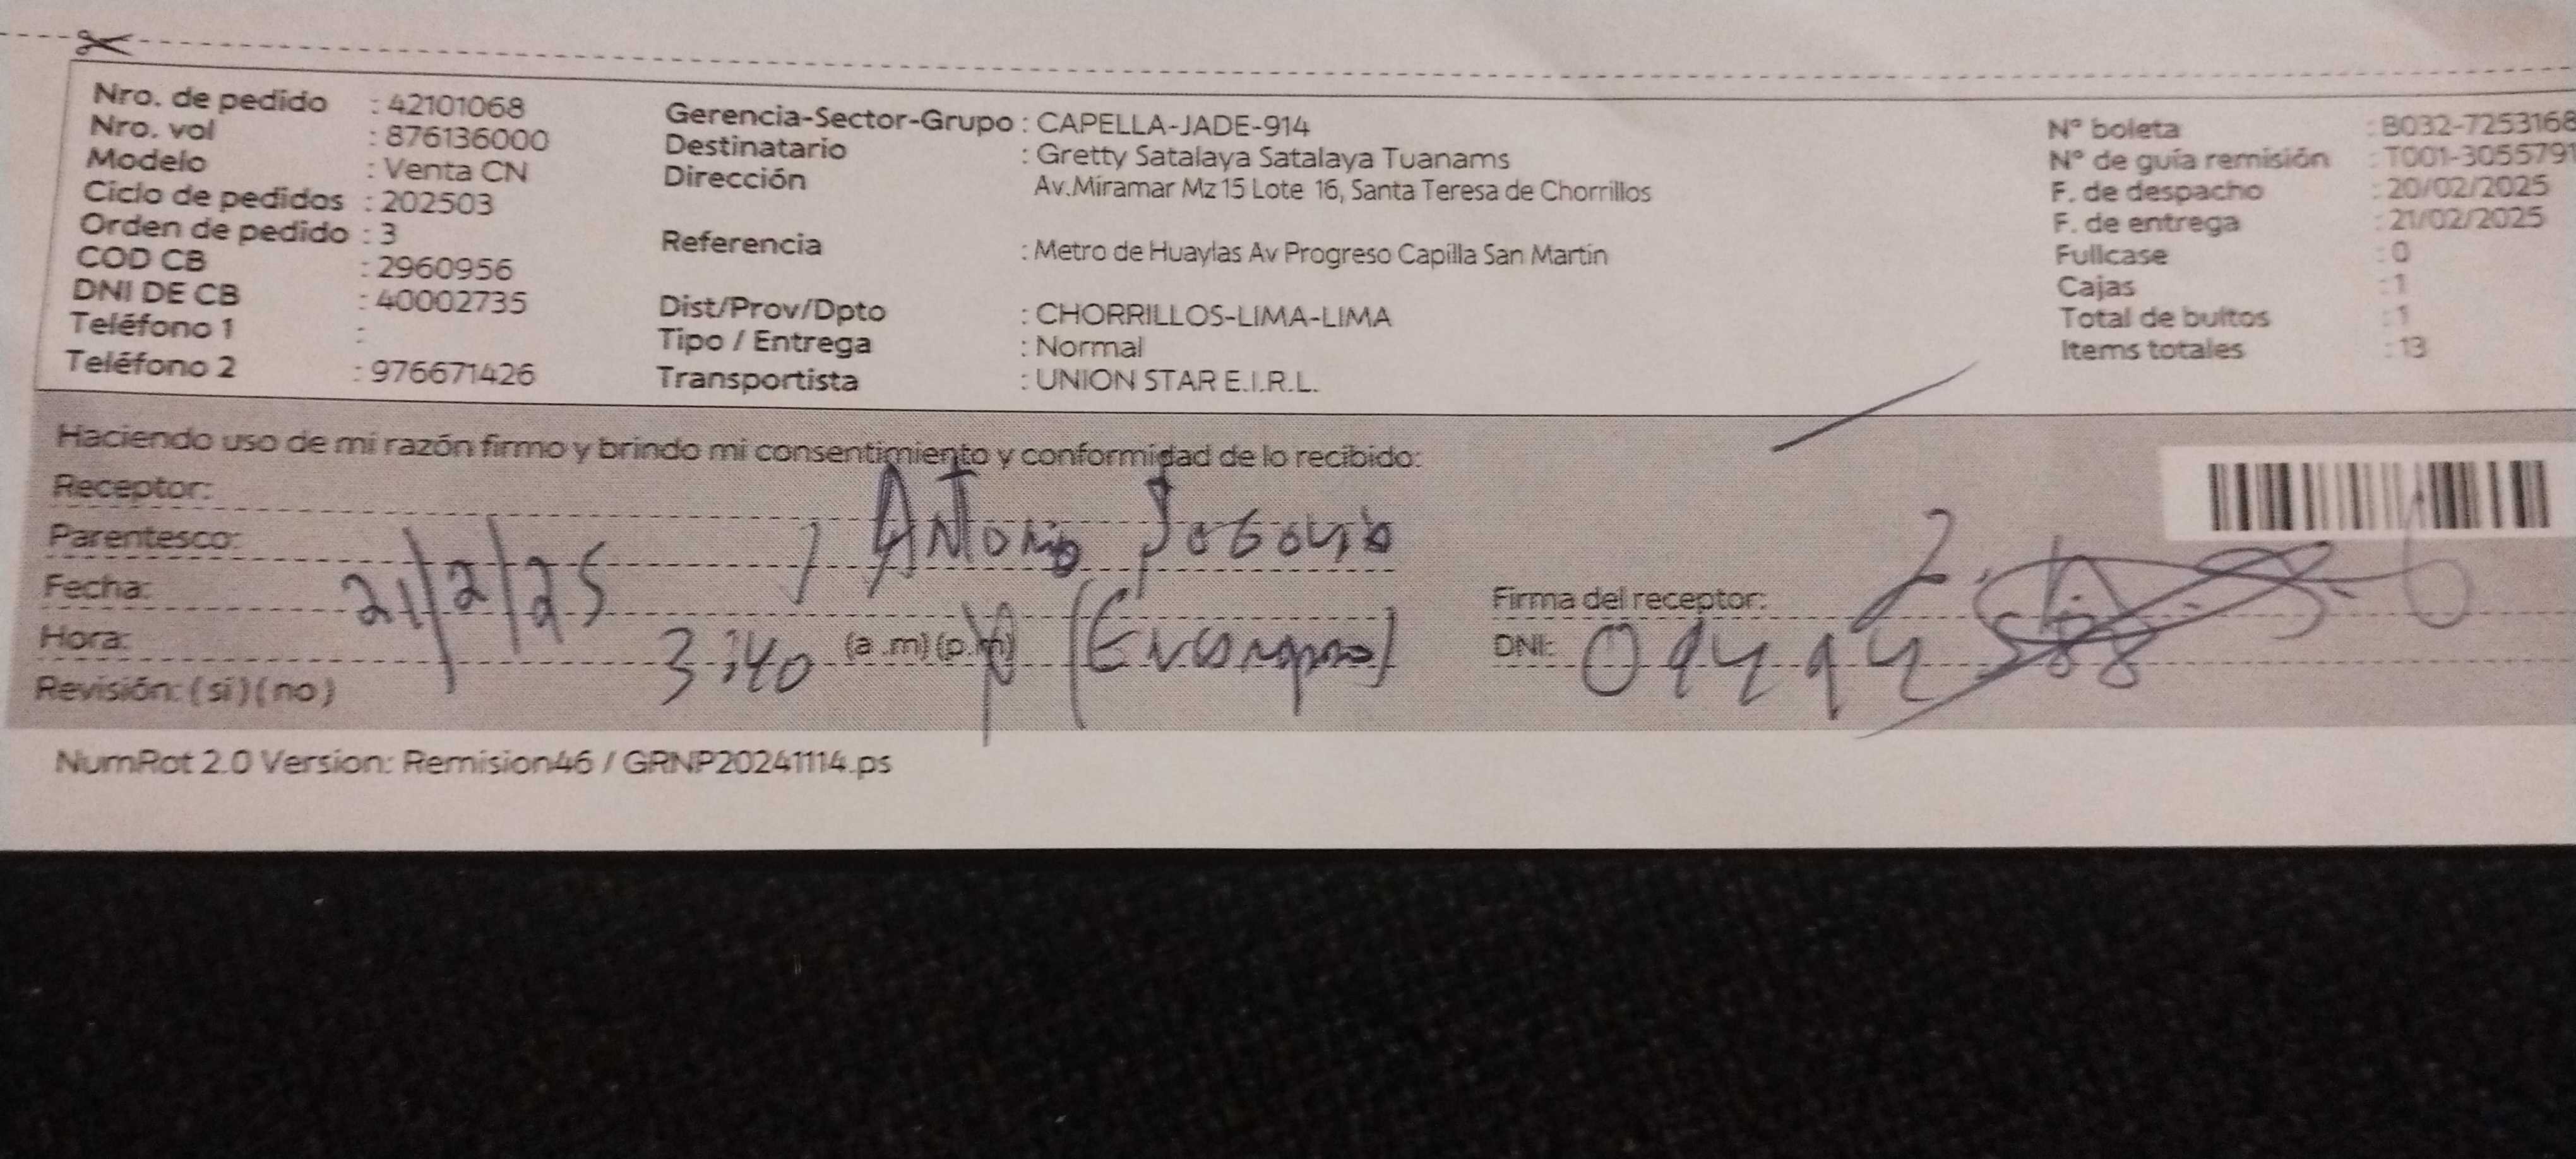 Nro. de pedido : 42101068
Nro. vol : 876136000
Modelo : Venta CN
Ciclo de pedidos : 202503
Orden de pedido : 3
COD CB : 2960956
DNI DE CB : 40002735
Teléfono 1 :
Teléfono 2 : 976671426
Gerencia-Sector-Grupo : CAPELLA-JADE-914
Destinatario : Gretty Satalaya Satalaya Tuanams
Dirección Av.Miramar Mz 15 Lote 16, Santa Teresa de Chorrillos
Referencia : Metro de Huaylas Av Progreso Capilla San Martin
Dist/Prov/Dpto : CHORRILLOS-LIMA-LIMA
Tipo / Entrega : Normal
Transportista : UNION STAR E.I.R.L.
N° boleta : B032-7253168
N° de guía remisión : T001-3055791
F. de despacho : 20/02/2025
F. de entrega : 21/02/2025
Fullcase : 0
Cajas : 1
Total de bultos : 1
Items totales : 13
Haciendo uso de mi razón firmo y brindo mi consentimiento y conformidad de lo recibido:
Receptor: Antonio
Parentesco:
Fecha: 21/2/25
Hora: 3:40 (a.m)(p.m)
Revisión: (si)(no)
Firma del receptor:
DNI:
NumRot 2.0 Version: Remision46 / GRNP20241114.ps